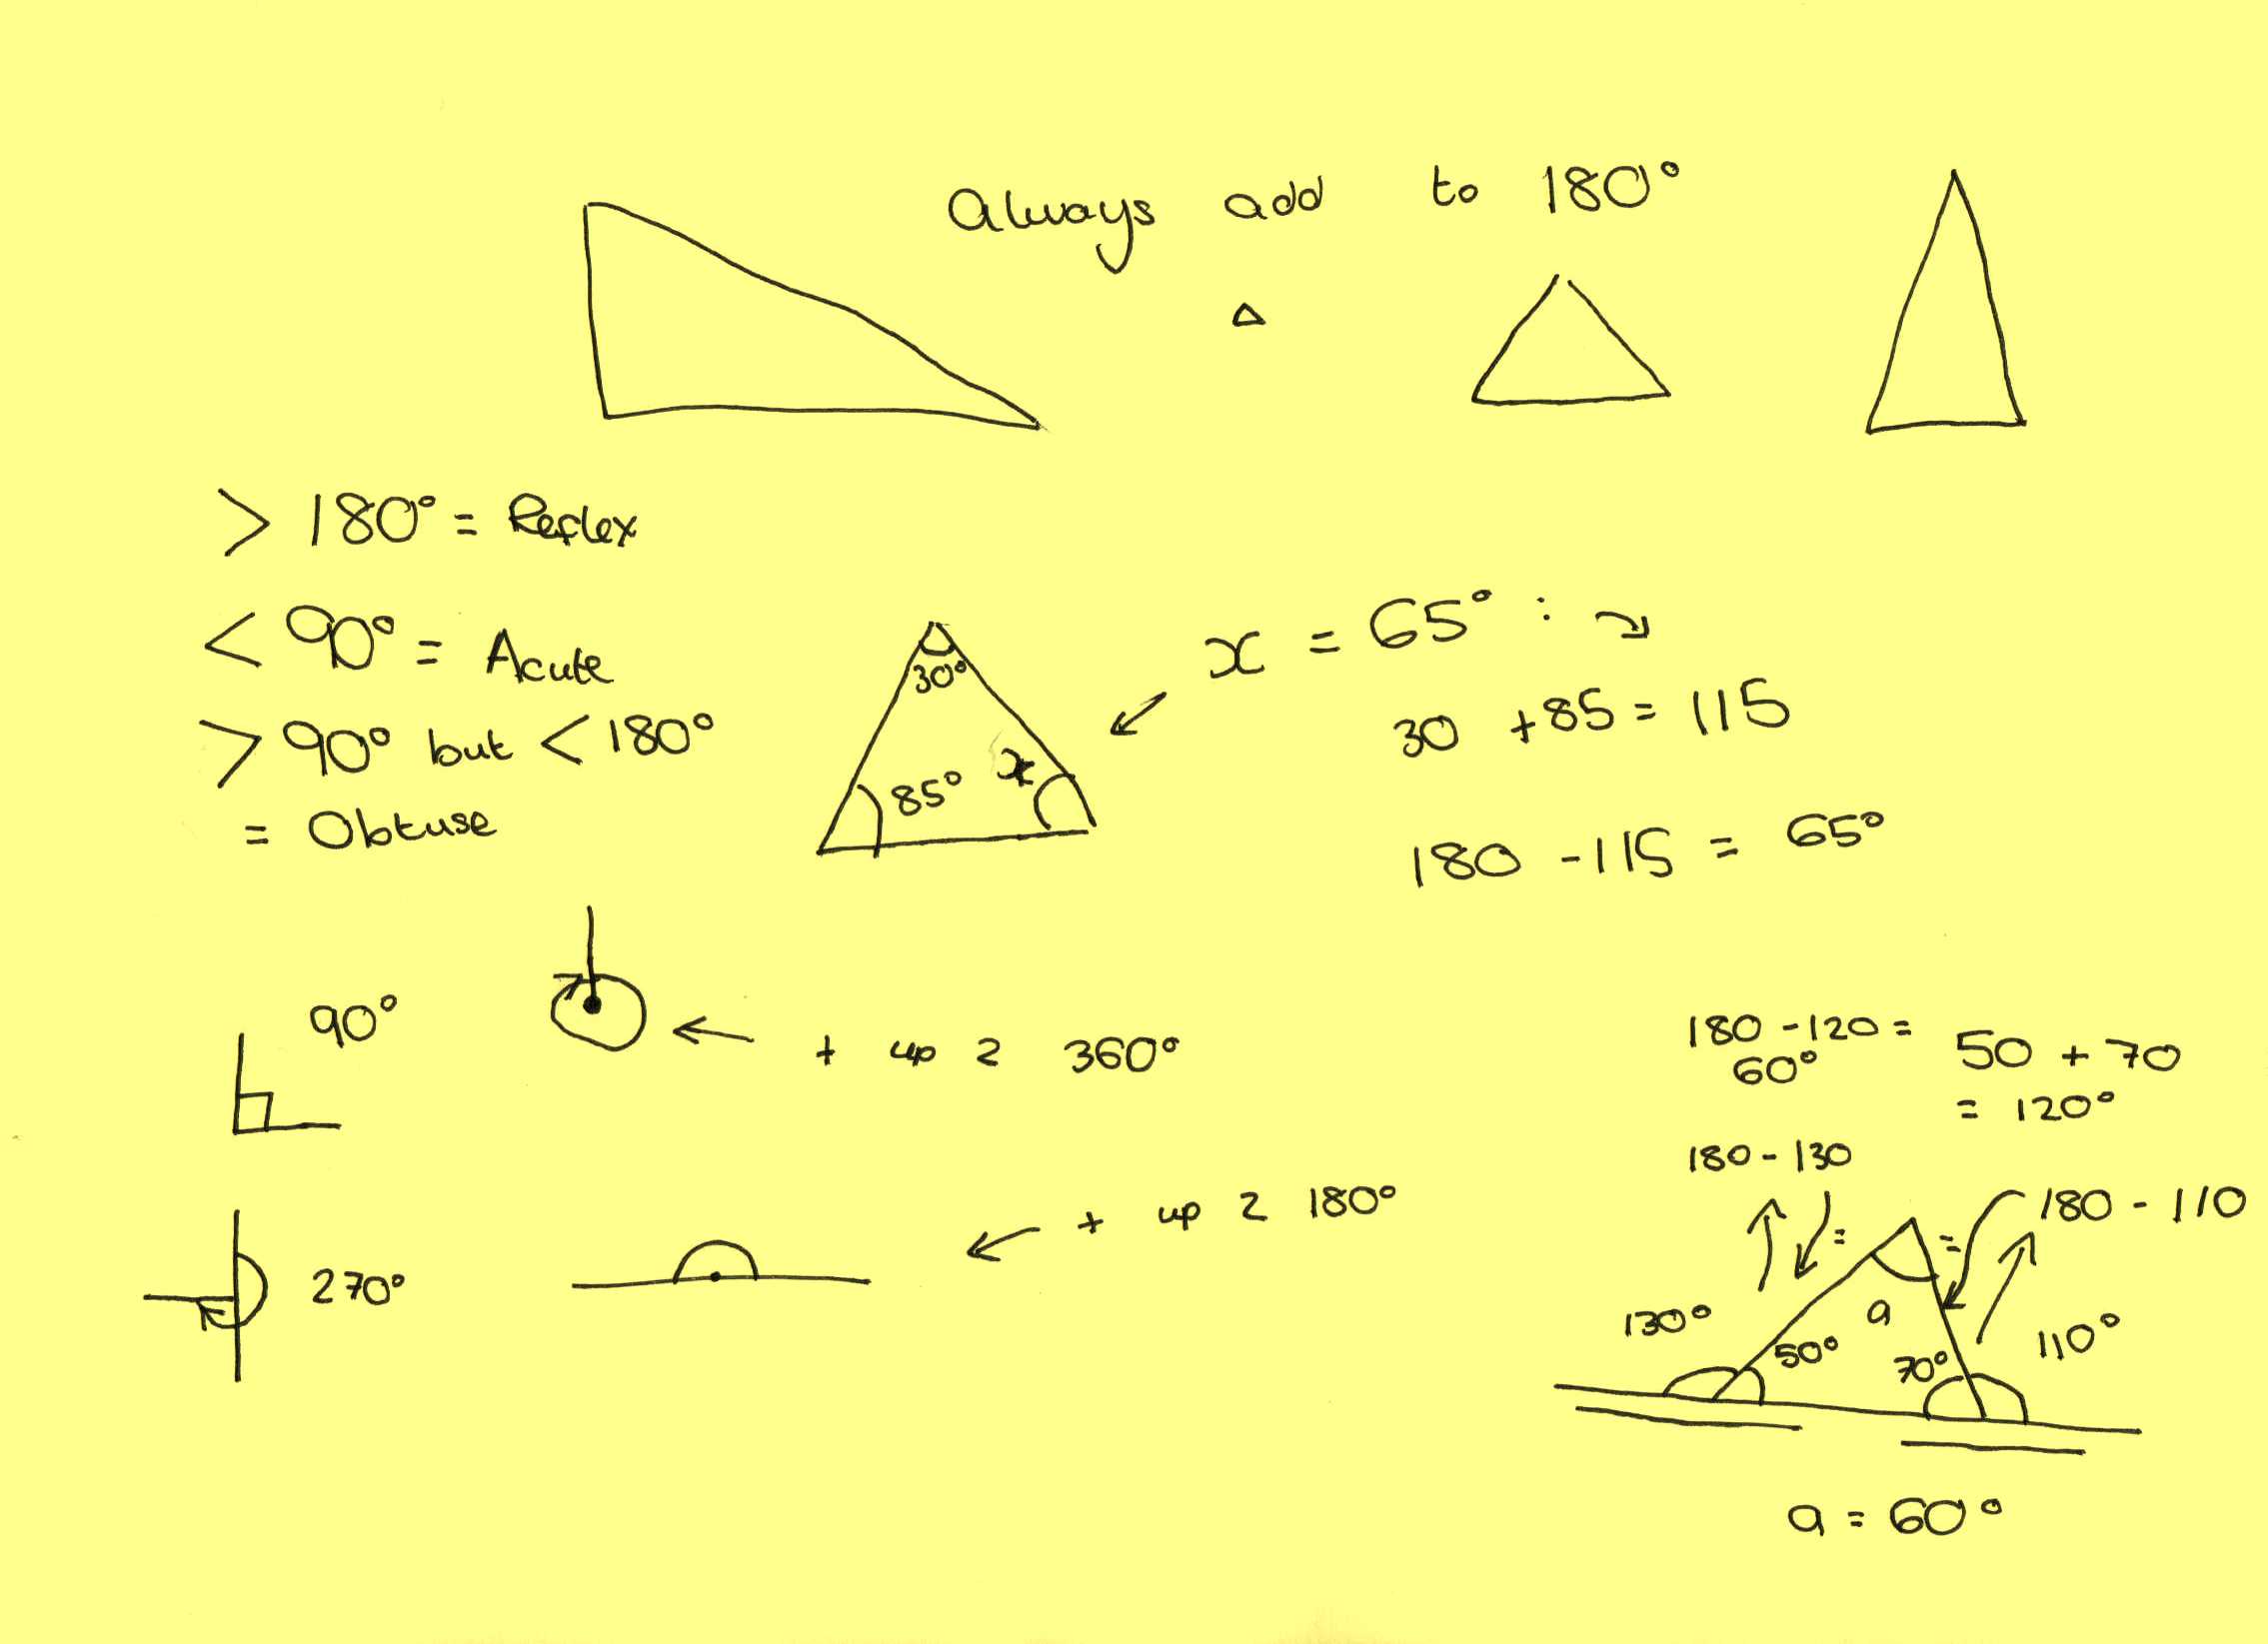 Always add to 180°
> 180° = Reflex
< 90° = Acute
> 90° but < 180°
= Obtuse
30°
85°
x
x = 65° :
30 + 85 = 115
180 - 115 = 65°
90°
+ up 2 360°
270°
+ up 2 180°
180 - 120 =
60°
50 + 70
= 120°
180 - 130
=
=
180 - 110
130°
50°
a
70°
110°
a = 60°